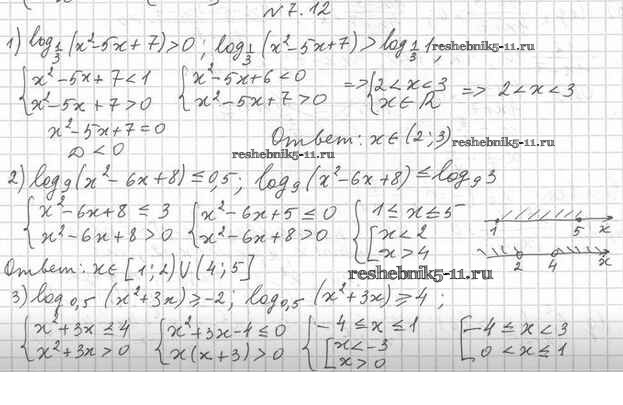 № 7.12
1) log_{1/3}(x²-5x+7)>0; log_{1/3}(x²-5x+7)>log_{1/3}1;
reshebnik5-11.ru
{x²-5x+7<1 {x²-5x+6<0 => {2<x<3 => 2<x<3
{x²-5x+7>0 {x²-5x+7>0 {x∈R
x²-5x+7=0
D<0 Ответ: x∈(2;3)
reshebnik5-11.ru
reshebnik5-11.ru
2) log_9(x²-6x+8)≤0,5; log_9(x²-6x+8)≤log_9 3
{x²-6x+8≤3 {x²-6x+5≤0 {1≤x≤5 1 5 x
{x²-6x+8>0 {x²-6x+8>0 {[x<2
[x>4 2 4 x
Ответ: x∈[1;2)∪(4;5]
reshebnik5-11.ru
3) log_{0,5}(x²+3x)≥-2; log_{0,5}(x²+3x)≥4;
{x²+3x≤4 {x²+3x-4≤0 {-4≤x≤1 [-4≤x<3
{x²+3x>0 {x(x+3)>0 {[x<-3 [0<x≤1
[x>0